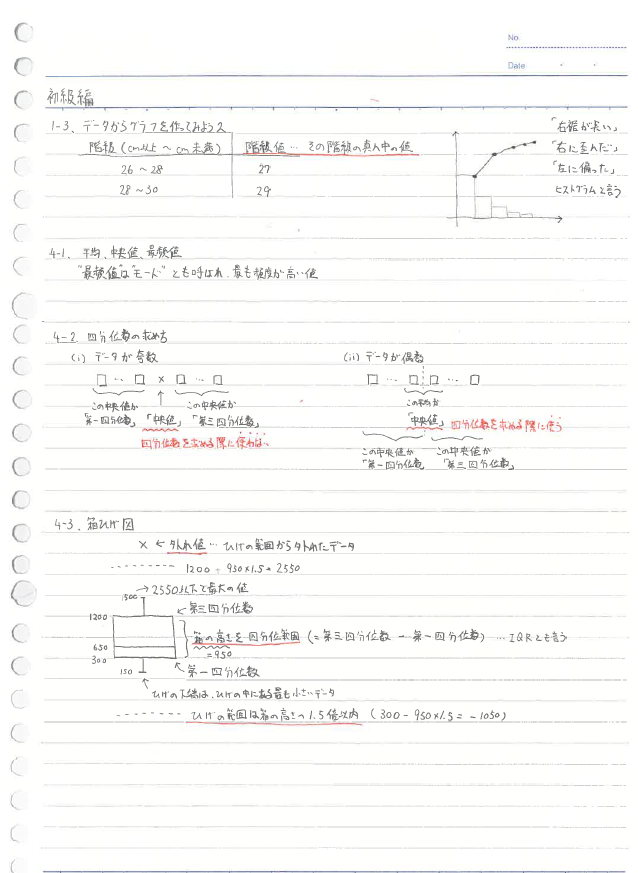 No.
Date
初級編
1-3. データからグラフを作ってみよう2
階級 (cm以上 ～ cm未満) 階級値 … その階級の真ん中の値
26 ～ 28 27
28 ～ 30 29
「右裾が長い」
「右に歪んだ」
「左に偏った」
ヒストグラムと言う
4-1. 平均、中央値、最頻値
"最頻値"は"モード"とも呼ばれ、最も頻度が高い値
4-2. 四分位数の求め方
(i) データが奇数
□ … □ × □ … □
この中央値が この中央値が
「第一四分位数」 「中央値」 「第三四分位数」
四分位数を求める際に使わない
(ii) データが偶数
□ … □ □ … □
この平均が
「中央値」 四分位数を求める際に使う
この中央値が この中央値が
「第一四分位数」 「第三四分位数」
4-3. 箱ひげ図
× ← 外れ値 … ひげの範囲から外れたデータ
1200 + 950×1.5 = 2550
→ 2550以下で最大の値
1500
← 第三四分位数
1200
箱の高さを四分位範囲 (= 第三四分位数 － 第一四分位数) … IQRとも言う
650
= 950
300
150
第一四分位数
ひげの下端は、ひげの中にある最も小さいデータ
ひげの範囲は箱の高さの1.5倍以内 (300 - 950×1.5 = -1050)